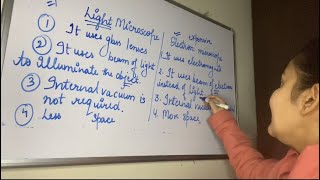 ① Light Microscope
It uses glass lenses
② It uses beam of light
to illuminate the object
③ Internal vacuum is
not required.
④ Less Space
Electron microscope
1. It uses electromagnets
2. It uses beam of electron
instead of light
3. Internal
4. More space